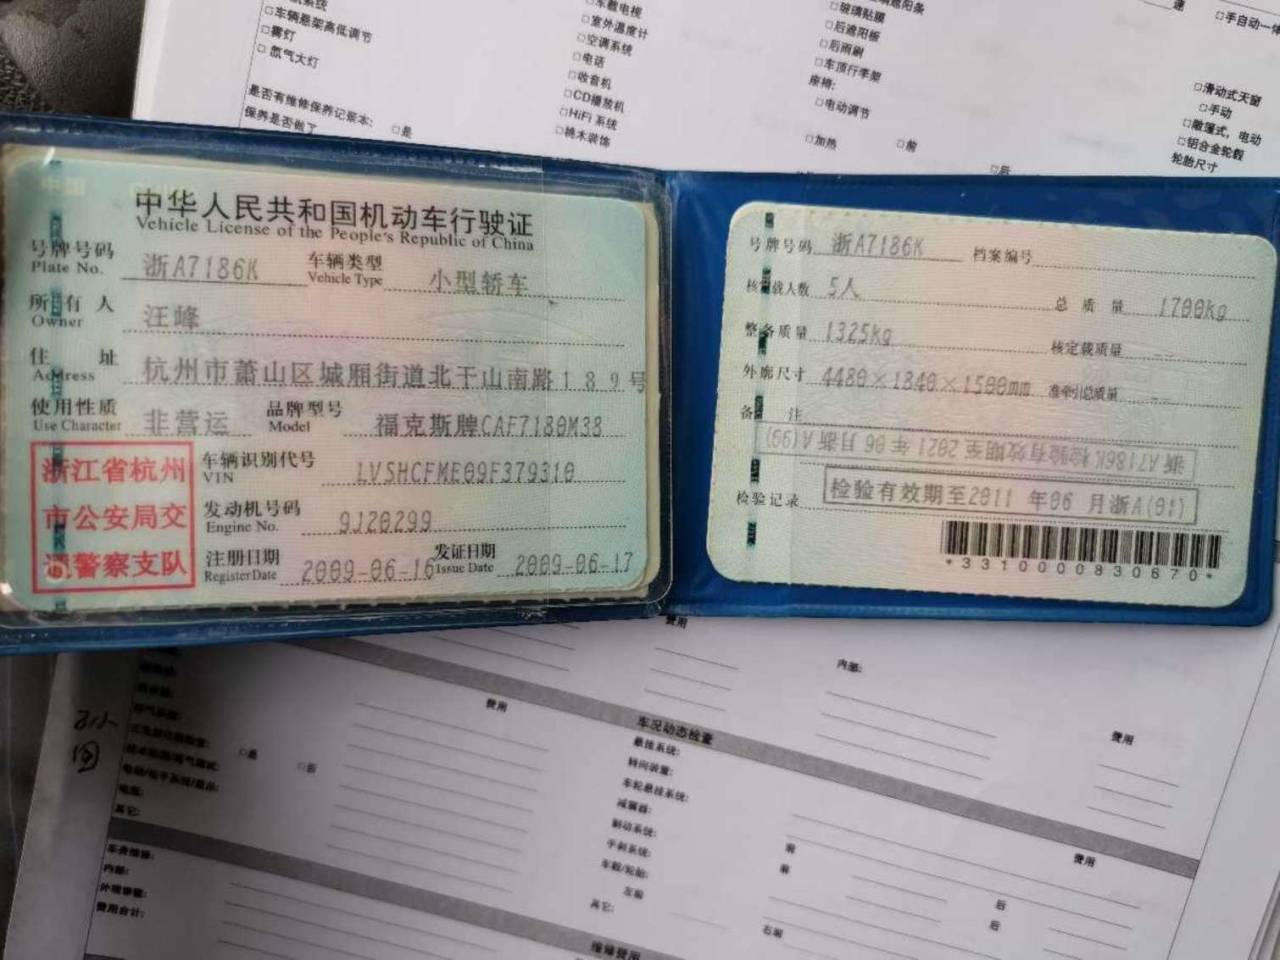 □车辆悬架高低调节
□雾灯
□ 氙气大灯
是否有维修保养记录本: □是
保养是否做了
□车载电视
□室外温度计
□空调系统
□电话
□收音机
□CD播放机
□HiFi 系统
□桃木装饰
□玻璃贴膜
□后遮阳板
□后雨刷
□车顶行李架
座椅:
□电动调节
□加热 □前
□后
□手自动一体
□滑动式天窗
□手动
□敞篷式, 电动
□铝合金轮毂
轮胎尺寸
中华人民共和国机动车行驶证
Vehicle License of the People's Republic of China
号牌号码 浙A7186K 车辆类型 小型轿车
Plate No. Vehicle Type
所有人 汪峰
Owner
住址 杭州市萧山区城厢街道北干山南路189号
Address
使用性质 非营运 品牌型号 福克斯牌CAF7180M38
Use Character Model
浙江省杭州
市公安局交
通警察支队
车辆识别代号 LVSHCFME09F379310
VIN
发动机号码 9J20299
Engine No.
注册日期 2009-06-16 发证日期 2009-06-17
Register Date Issue Date
号牌号码 浙A7186K 档案编号
核定载人数 5人 总质量 1700kg
整备质量 1325kg 核定载质量 --
外廓尺寸 4480×1840×1500mm 准牵引总质量 --
备注
浙A7186K检验有效期至2021年06月浙A(99)
检验记录 检验有效期至2011 年06 月浙A(01)
*3310000830670*
费用
内部:
费用
车况动态检查
费用
□是 □否
悬挂系统:
转向装置:
车轮悬挂系统:
减震器:
制动系统:
手刹系统:
车毂/轮胎:
左前
其它:
前
前
费用
后
后
石前
其它:
车身维修:
内部:
外理修整:
费用合计:
维修费用